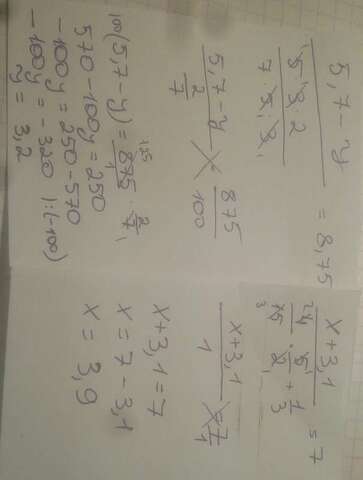 5,7 - y
= 8,75
5,7 - y
2
7
875
100
100(5,7 - y) = 875 · 2/7
570 - 100y = 250
-100y = 250 - 570
-100y = -320 |:(-100)
y = 3,2
x + 3,1
+ 1/3
= 7
x + 3,1
1
= 7
1
x + 3,1 = 7
x = 7 - 3,1
x = 3,9